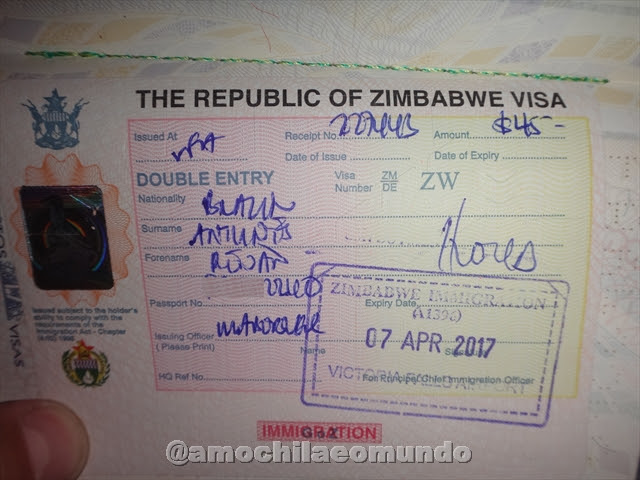 THE REPUBLIC OF ZIMBABWE VISA
Issued At VFA Receipt No. 227443 Amount $45-
Date of Issue Date of Expiry
DOUBLE ENTRY Visa Number ZM DE ZW
Nationality
Surname ANTUNES
Forename
Passport No. Expiry Date
Issuing Officer
( Please Print) Name
HQ Ref No. For Principal Chief Immigration Officer
Issued subject to the holder's
ability to comply with the
requirements of the
Immigration Act - Chapter
VISAS
ZIMBABWE IMMIGRATION
(A1396)
07 APR 2017
VICTORIA FALLS AIRPORT
IMMIGRATION
@amochilaeomundo